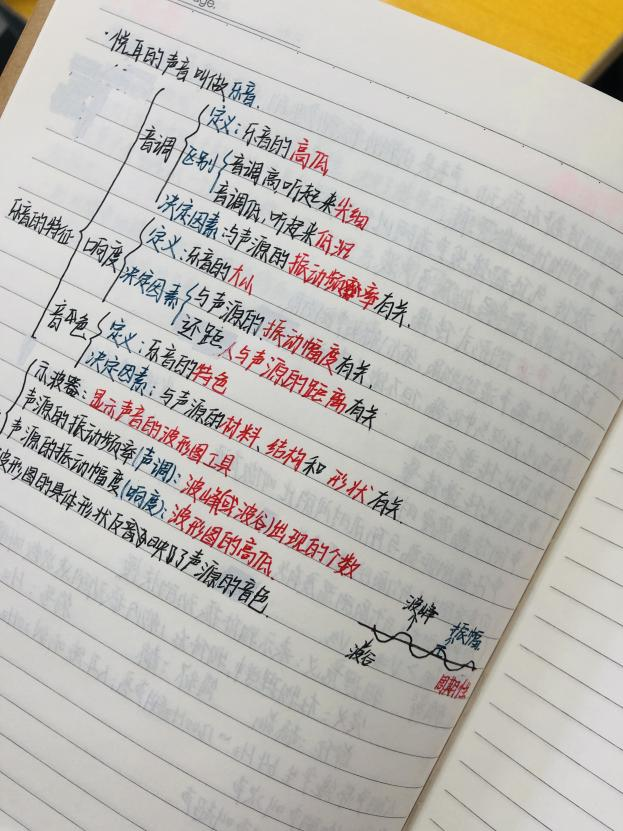 age.
·悦耳的声音叫做乐音.
乐音的特征
音调
定义:乐音的高低
区别
音调高听起来尖细
音调低,听起来低沉
决定因素:与声源的振动频率有关.
响度
定义:乐音的大小
决定因素
与声源的振动幅度有关.
还跟人与声源的距离有关
音色
定义:乐音的特色
决定因素:与声源的材料、结构和形状有关.
示波器:显示声音的波形图工具
声源的振动频率(声调):波峰(或波谷)出现的个数
声源的振动幅度(响度):波形图的高低.
波形图的具体形状反映了声源的音色.
波峰
振幅
波谷
周期性